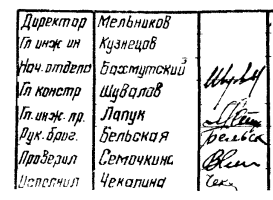 Директор Мельников
Гл инж ин Кузнецов
Нач. отдела Бахмутский
Гл констр Шувалов
Гл. инж. пр. Лапук
Рук. бриг. Бельская
Проверил Семочкина
Исполнил Чекалина